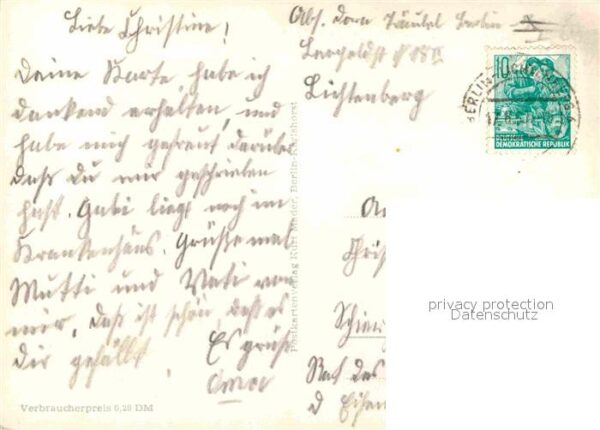 Liebe Christine!
Deine Karte, habe ich
dankend erhalten, und
habe mich gefreut darüber
daß du mir geschrieben
hast. Gabi liegt noch im
Krankenhaus. Grüße mal
Mutti und Vati von
mir, daß ist schön, daß es
dir gefällt. Es grüßt
Oma
Verbraucherpreis 0,20 DM
Postkartenverlag Kurt Mader, Berlin-Karlshorst
Abs. Täubel Berlin
Lichtenberg
10
DEUTSCHE
DEMOKRATISCHE REPUBLIK
BERLIN
An
Chris
Schie
Rat des
d Eisen
privacy protection
Datenschutz